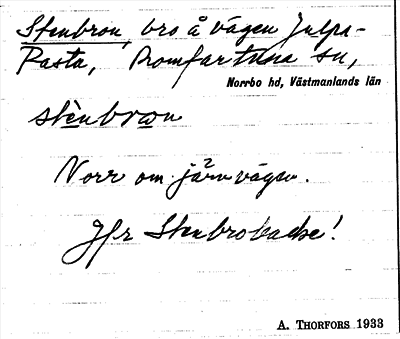 Stenbron, bro å vägen Julpa-
Rasta, Romfartuna sn,
Norrbo hd, Västmanlands län
stènbron
Norr om järnvägen.
Jfr Stenbrobacke!
A. THORFORS 1933